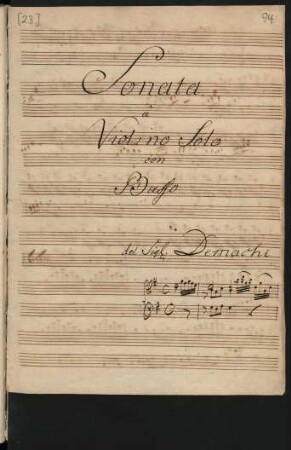 [23] 94
Sonata
a
Violino Solo
con
Basso
del Sigr. Demachi